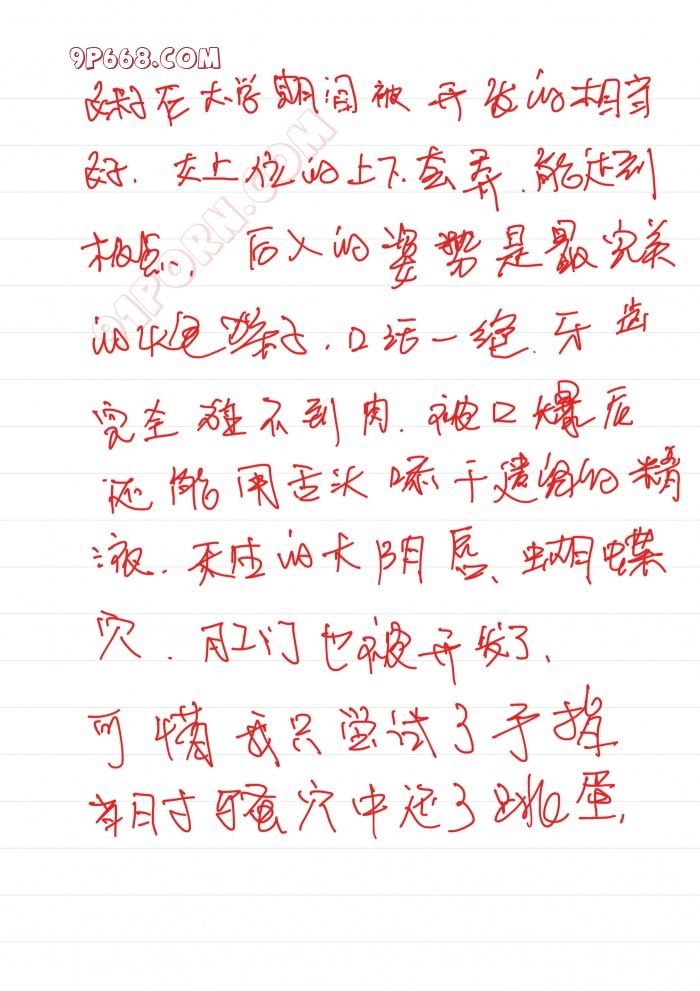 9P668.COM
在大学期间被开发的相当
好.女上位的上下套弄.能达到
极点、后入的姿势是最完美
的.口活一绝.牙齿
完全碰不到肉.被口爆后
还能用舌头嗦干的精
液.天生的大阴唇、蝴蝶
穴.肛门也被开发了、
可惜我只尝试了手指
当时骚穴中还了跳蛋.
91PORN.COM